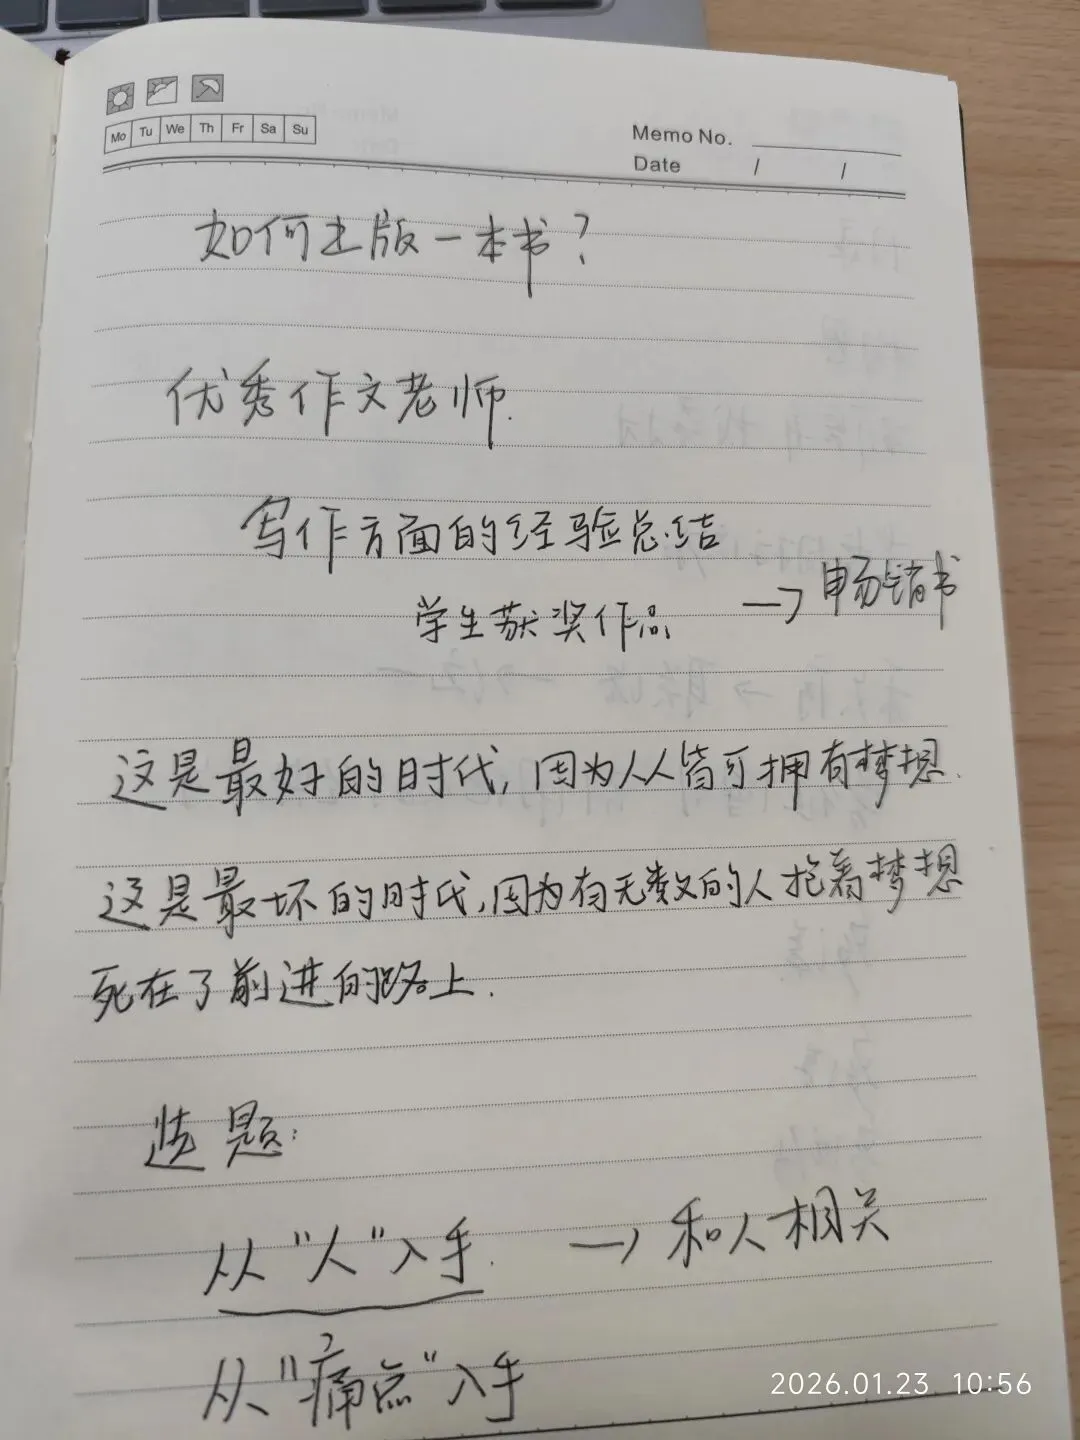 Mo Tu We Th Fr Sa Su
Memo No.
Date / /
如何出版一本书?
优秀作文老师.
写作方面的经验总结
学生获奖作品 → 畅销书
这是最好的时代,因为人人皆可拥有梦想.
这是最坏的时代,因为有无数的人抱着梦想
死在了前进的路上.
选题:
从"人"入手. → 和人相关
从"痛点"入手
2026.01.23 10:56